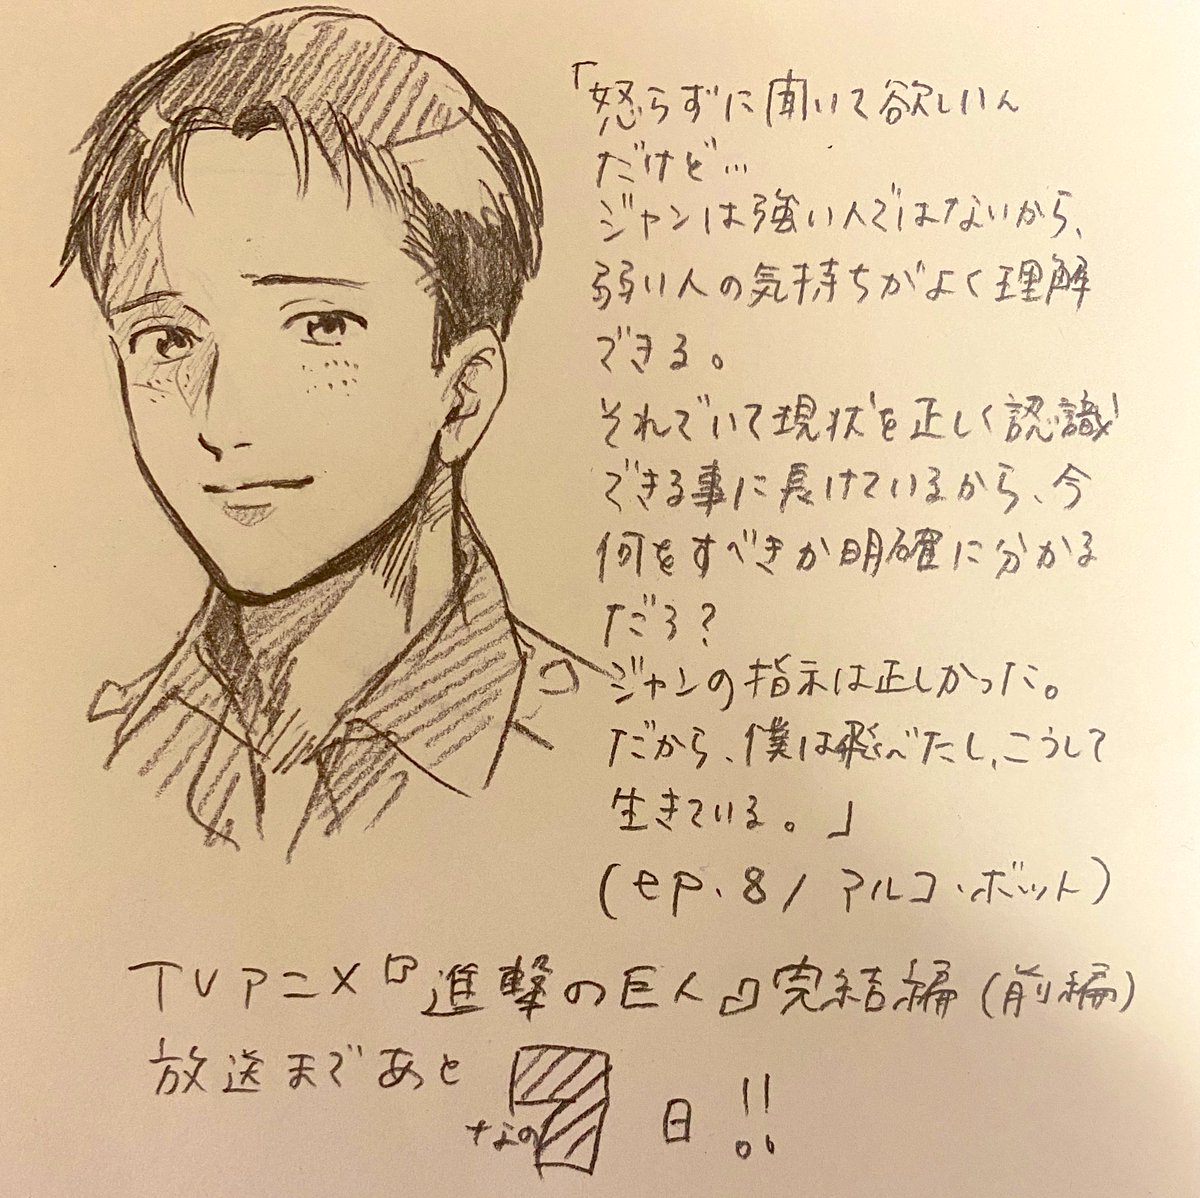 「怒らずに聞いて欲しいん
だけど…
ジャンは強い人ではないから、
弱い人の気持ちがよく理解
できる。
それでいて現状を正しく認識
できる事に長けているから、今
何をすべきか明確に分かる
だろ?
ジャンの指示は正しかった。
だから、僕は飛べたし、こうして
生きている。」
(ep.8/マルコ・ボット)
TVアニメ『進撃の巨人』完結編(前編)
放送まであと
7日!!
なの